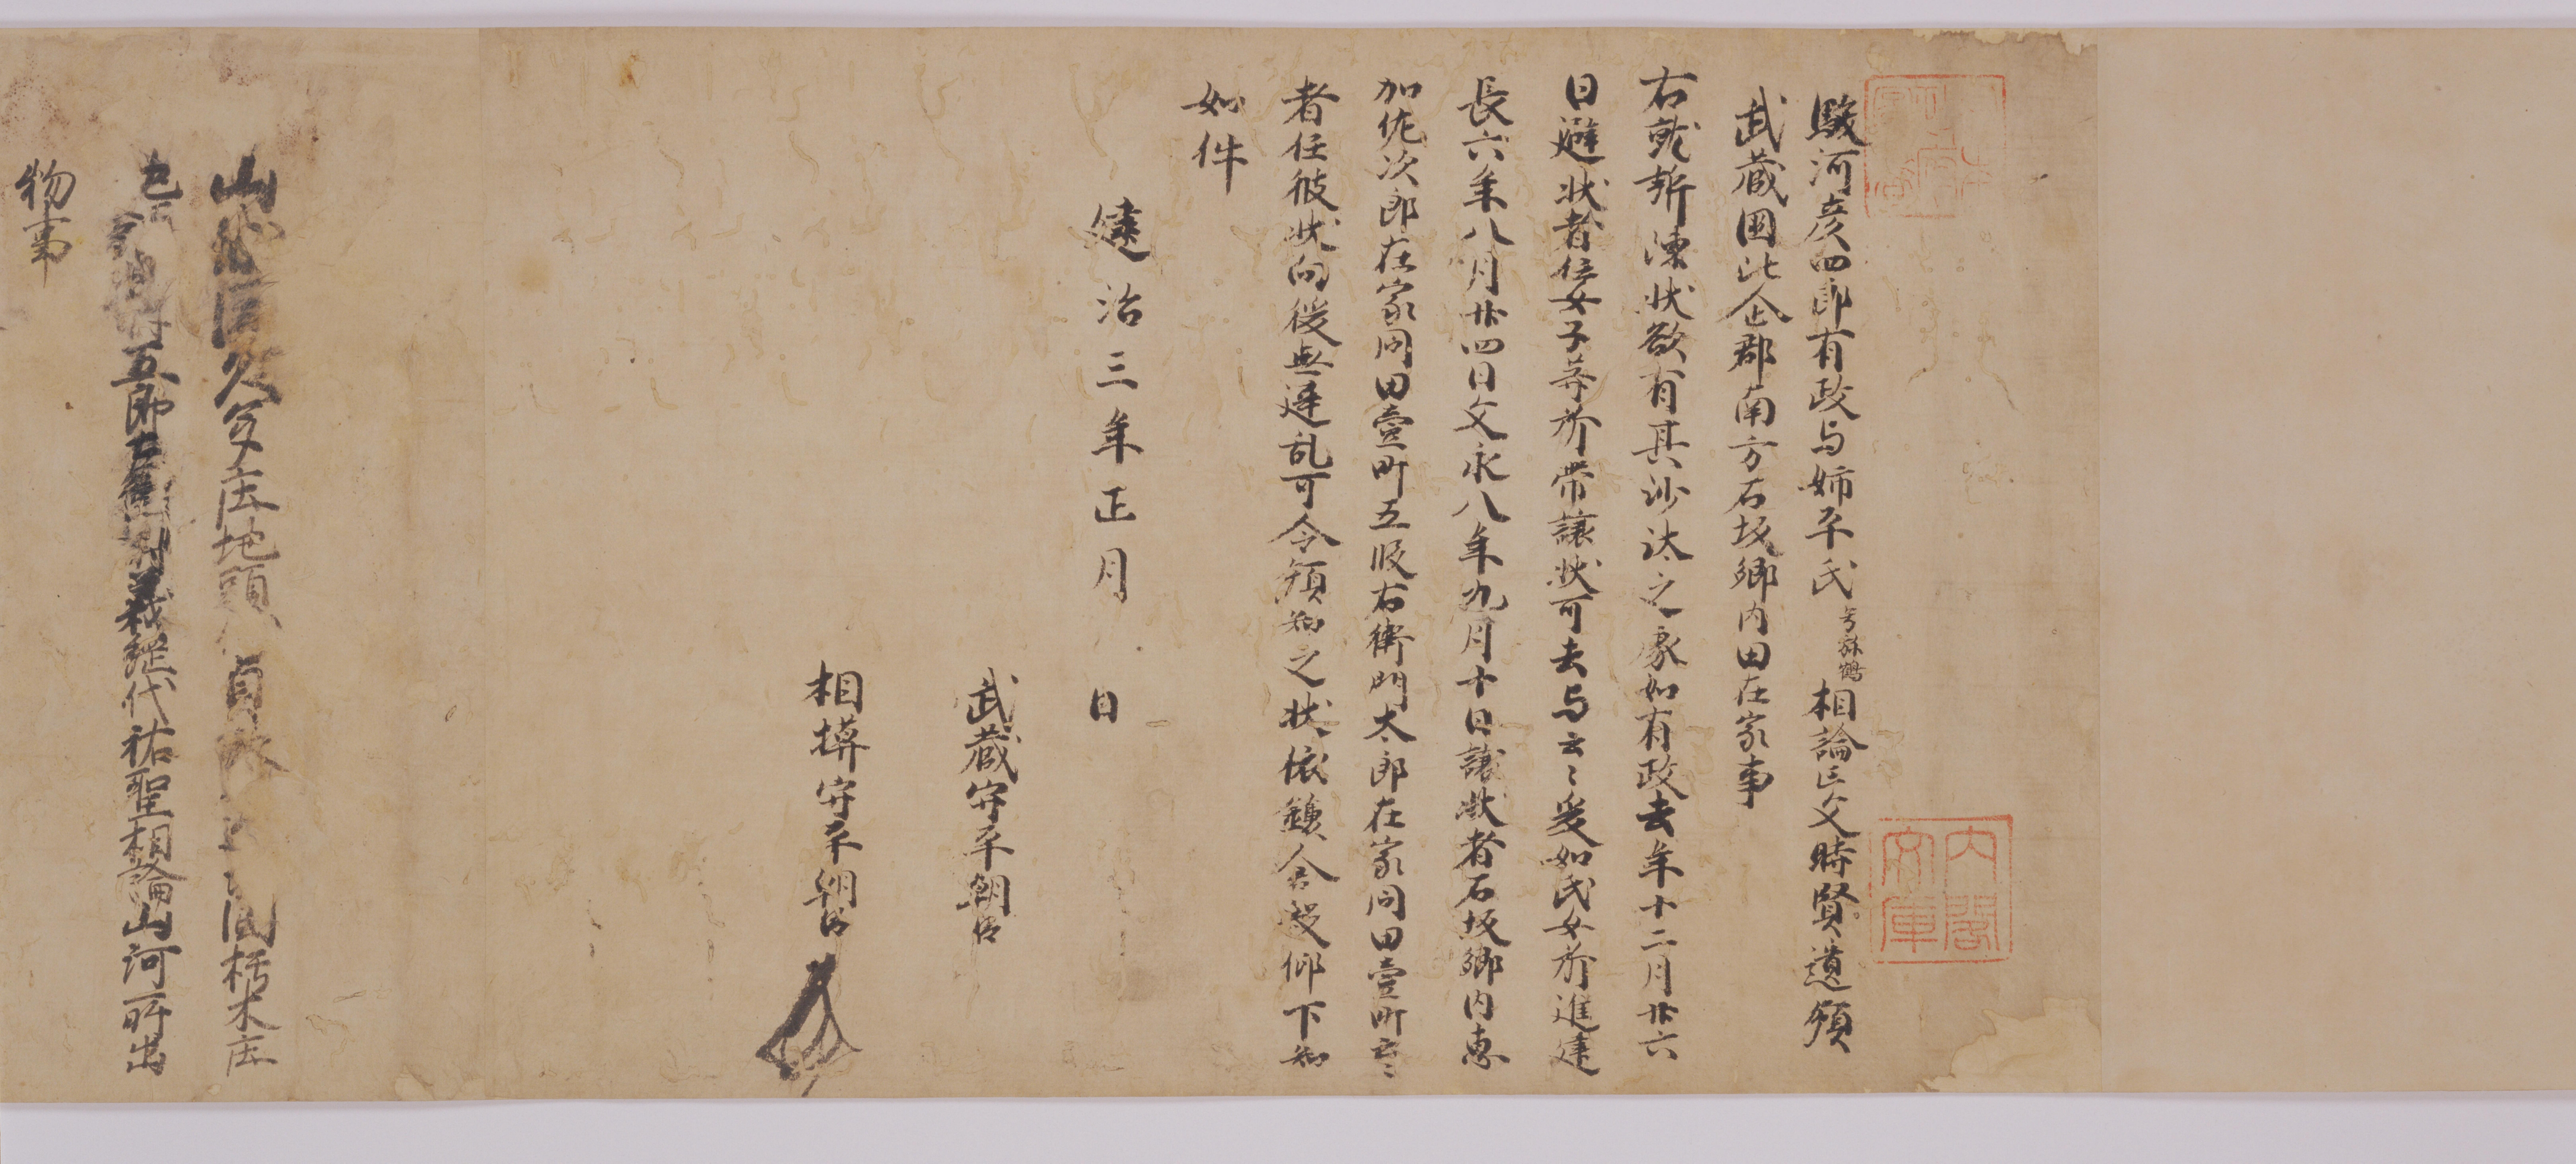 駿河彦四郎有政与姉平氏字弥鶴相論亡父時賢遺領
武蔵国比企郡南方石坂郷内田在家事
右就訴陳状欲有其沙汰之処如有政去年十二月廿六
日避状者任女子等所帯譲状可去与云々爰如氏女所進建
長六年八月廿四日文永八年九月十日譲状者石坂郷内恵
加佐次郎在家同田壹町五段右衛門太郎在家同田壹町云々
者任彼状向後無違乱可令領知之状依鎌倉殿仰下知
如件
建治三年正月 日
武蔵守平朝臣
相模守平朝臣
庄地頭 国栃木庄
五郎左衛門尉義綱代祐聖相論山河所出
物事
内閣文庫